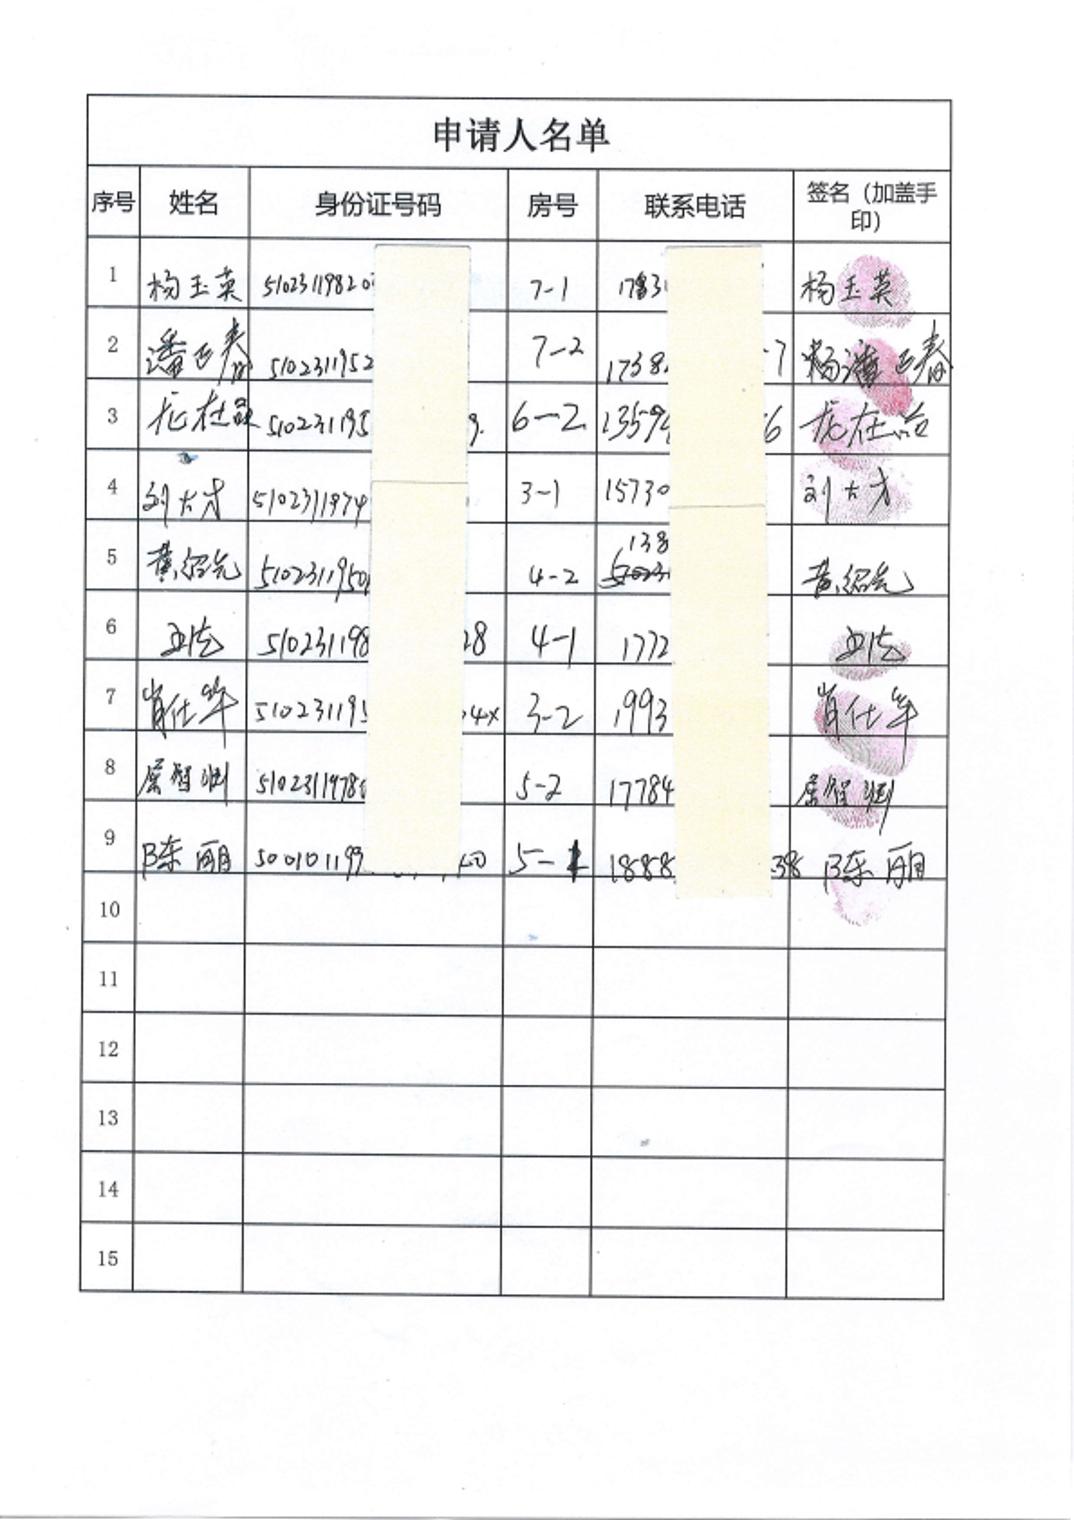 申请人名单
序号 姓名 身份证号码 房号 联系电话 签名（加盖手印）
1 杨玉英 51023119820 7-1 17831 杨玉英
2 潘正春 5102311952 7-2 1738 7 潘正春
3 龙在 510231195 9. 6-2 13594 6 龙在
4 刘大才 5102311974 3-1 15730 刘大才
138
5 黄绍先 510231195 4-2 黄绍先
6 510231198 28 4-1 1772
7 肖仕华 510231195 4x 3-2 1993 肖仕华
8 屈智渊 510231197 5-2 17784 屈智渊
9 陈丽 500101199 5-1 1888 38 陈丽
10
11
12
13
14
15